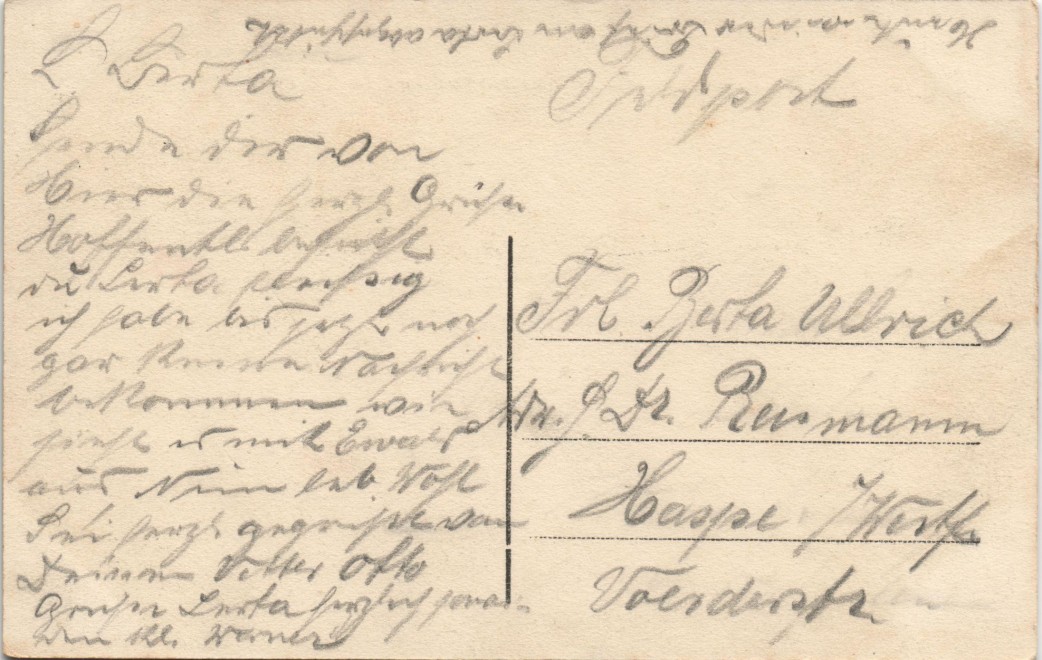 L. Berta
Sende dir von
Hier die herzl. Grüße
Hoffentl. besucht
du Berta fleißig
ich habe bis jetzt noch
gar keine Nachricht
bekommen wie
sieht es mit Ewald
aus Nun leb. Wohl
Sei herzl. gegrüßt von
Deinem Vetter Otto
Grüße Berta herzlich sowie
den kl. Werner
Feldpost
Frl. Berta Ullrich
Adr. H. Dr. Reusmann
Haspe i/Westf.
Voerderstr.